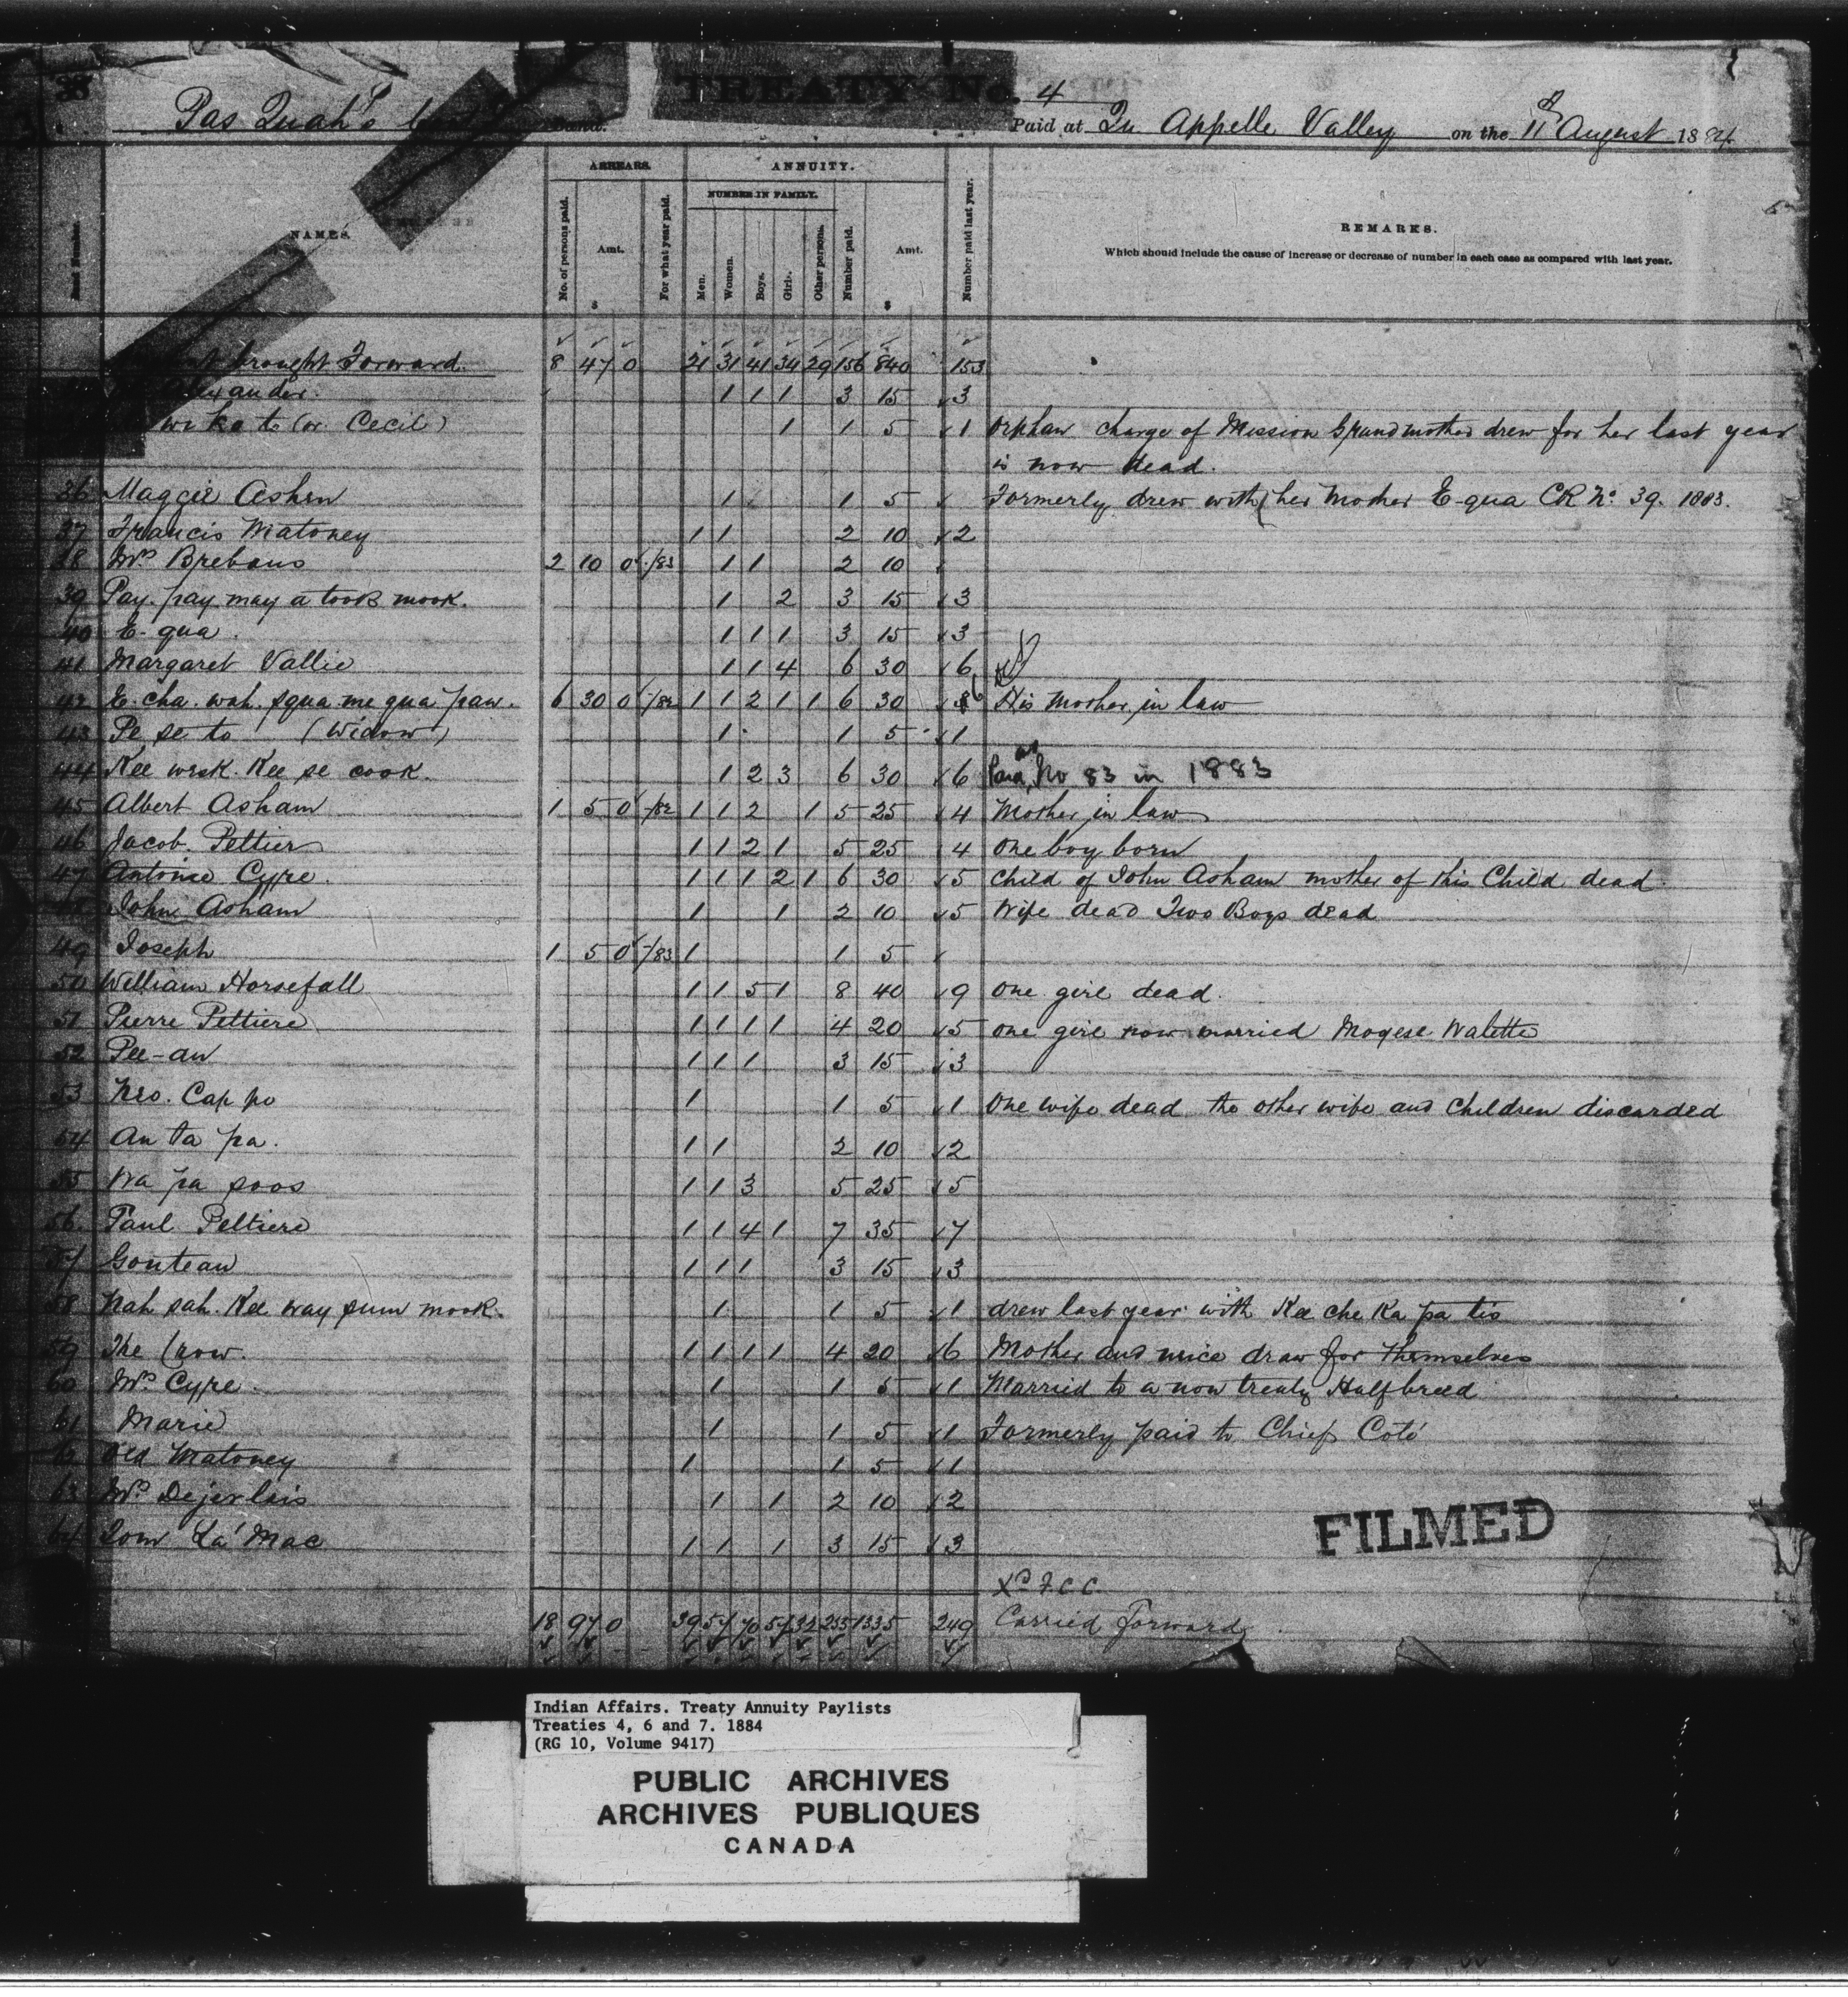 38
TREATY No. 4
Pas Quah's Band.
Paid at Qu Appelle Valley on the 11th August 1884.
ARREARS. ANNUITY.
NUMBER IN FAMILY.
Band Number. NAMES. No. of persons paid. Amt. $ For what year paid. Men. Women. Boys. Girls. Other persons. Number paid. Amt. $ Number paid last year. REMARKS.
Which should include the cause of increase or decrease of number in each case as compared with last year.
brought Forward. 8 47 0 21 31 41 34 29 156 840 153
1 1 1 3 15 3
wi ka te (or Cecil) 1 1 5 1 Orphan charge of Mission Grandmother drew for her last year
is now dead.
36 Maggie Ashen 1 1 5 Formerly drew with her Mother E-qua CR No. 39. 1883.
37 Francis Matoney 1 1 2 10 2
38 Mrs Brebans 2 10 0 /83 1 1 2 10
39 Pay. pay may a took mook. 1 2 3 15 3
40 E-qua. 1 1 1 3 15 3
41 Margaret Vallie 1 1 4 6 30 6
42 E. cha. wah. squa. me qua paw. 6 30 0 /82 1 1 2 1 1 6 30 6 His Mother in law
43 Pe se to (Widow) 1 1 5 1
44 Kee wesk. Kee se cook. 1 2 3 6 30 6 Paid as No 83 in 1883
45 Albert Asham 1 5 0 /82 1 1 2 1 5 25 4 Mother in law
46 Jacob. Peltier 1 1 2 1 5 25 4 One boy born
47 Antoine Cyre. 1 1 1 2 1 6 30 5 Child of John Asham mother of this Child dead.
48 John Asham 1 1 2 10 5 Wife dead Two Boys dead
49 Joseph 1 5 0 /83 1 1 5
50 William Horsefall 1 1 5 1 8 40 9 One girl dead.
51 Pierre Peltiere 1 1 1 1 4 20 5 one girl now married Moyese Walette
52 Pee-au 1 1 1 3 15 3
53 Neo. Cap po 1 1 5 1 One wife dead the other wife and Children discarded
54 An ta pa. 1 1 2 10 2
55 Wa pa soos 1 1 3 5 25 5
56. Paul Peltiere 1 1 4 1 7 35 7
57 Gonteau 1 1 1 3 15 3
58 Nah sah. Kee way sum mook. 1 1 5 1 drew last year with Kee che Ka pa tis
59 The Crow. 1 1 1 1 4 20 6 Mother and neice draw for themselves
60 Mrs Cyre. 1 1 5 1 Married to a non treaty Halfbreed
61 Marie 1 1 5 1 Formerly paid to Chief Coté
62 Old Matoney 1 1 5 1
63 Mrs Dejerlais 1 1 2 10 2
64 Tom La Mac 1 1 1 3 15 3
FILMED
Xd F.C.C.
18 97 0 39 57 70 57 32 255 1335 249 Carried Forward
Indian Affairs. Treaty Annuity Paylists
Treaties 4, 6 and 7. 1884
(RG 10, Volume 9417)
PUBLIC ARCHIVES
ARCHIVES PUBLIQUES
CANADA